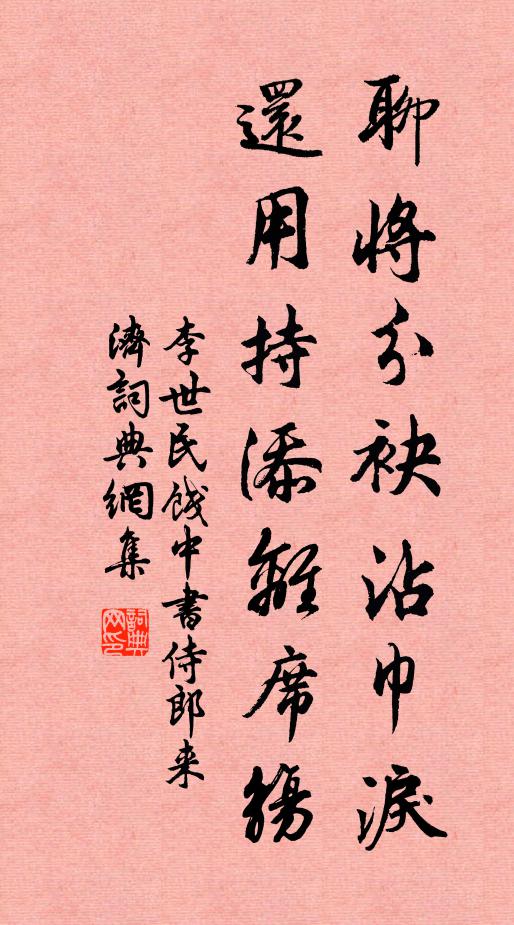 聊將分袂沾巾淚
還用持添離席觴
李世民餞中書侍郎来
濟詞典網集
詞典網印